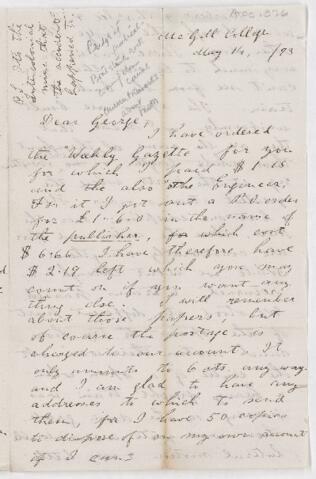 McGill College
May 14, /73
Dear George,
I have ordered
the "Weekly Gazette" for you
for which I paid $1.15
and the also "the Engineer,
for it I got out a P.O. order
for £1-6-0 in the name of
the publisher, for which cost
$6.66 I have therefore have
$2.19 left which you may
count on if you want any
thing else. I will remember
about those papers, but
of course the postage is
charged to our account. It
only amounts to 6 cts any way.
and I am glad to have any
addresses to which to send
them, for I have 50 copies
to dispose of on my own account
if I can.
P.S. It's the
mine that
the accident
happened in.